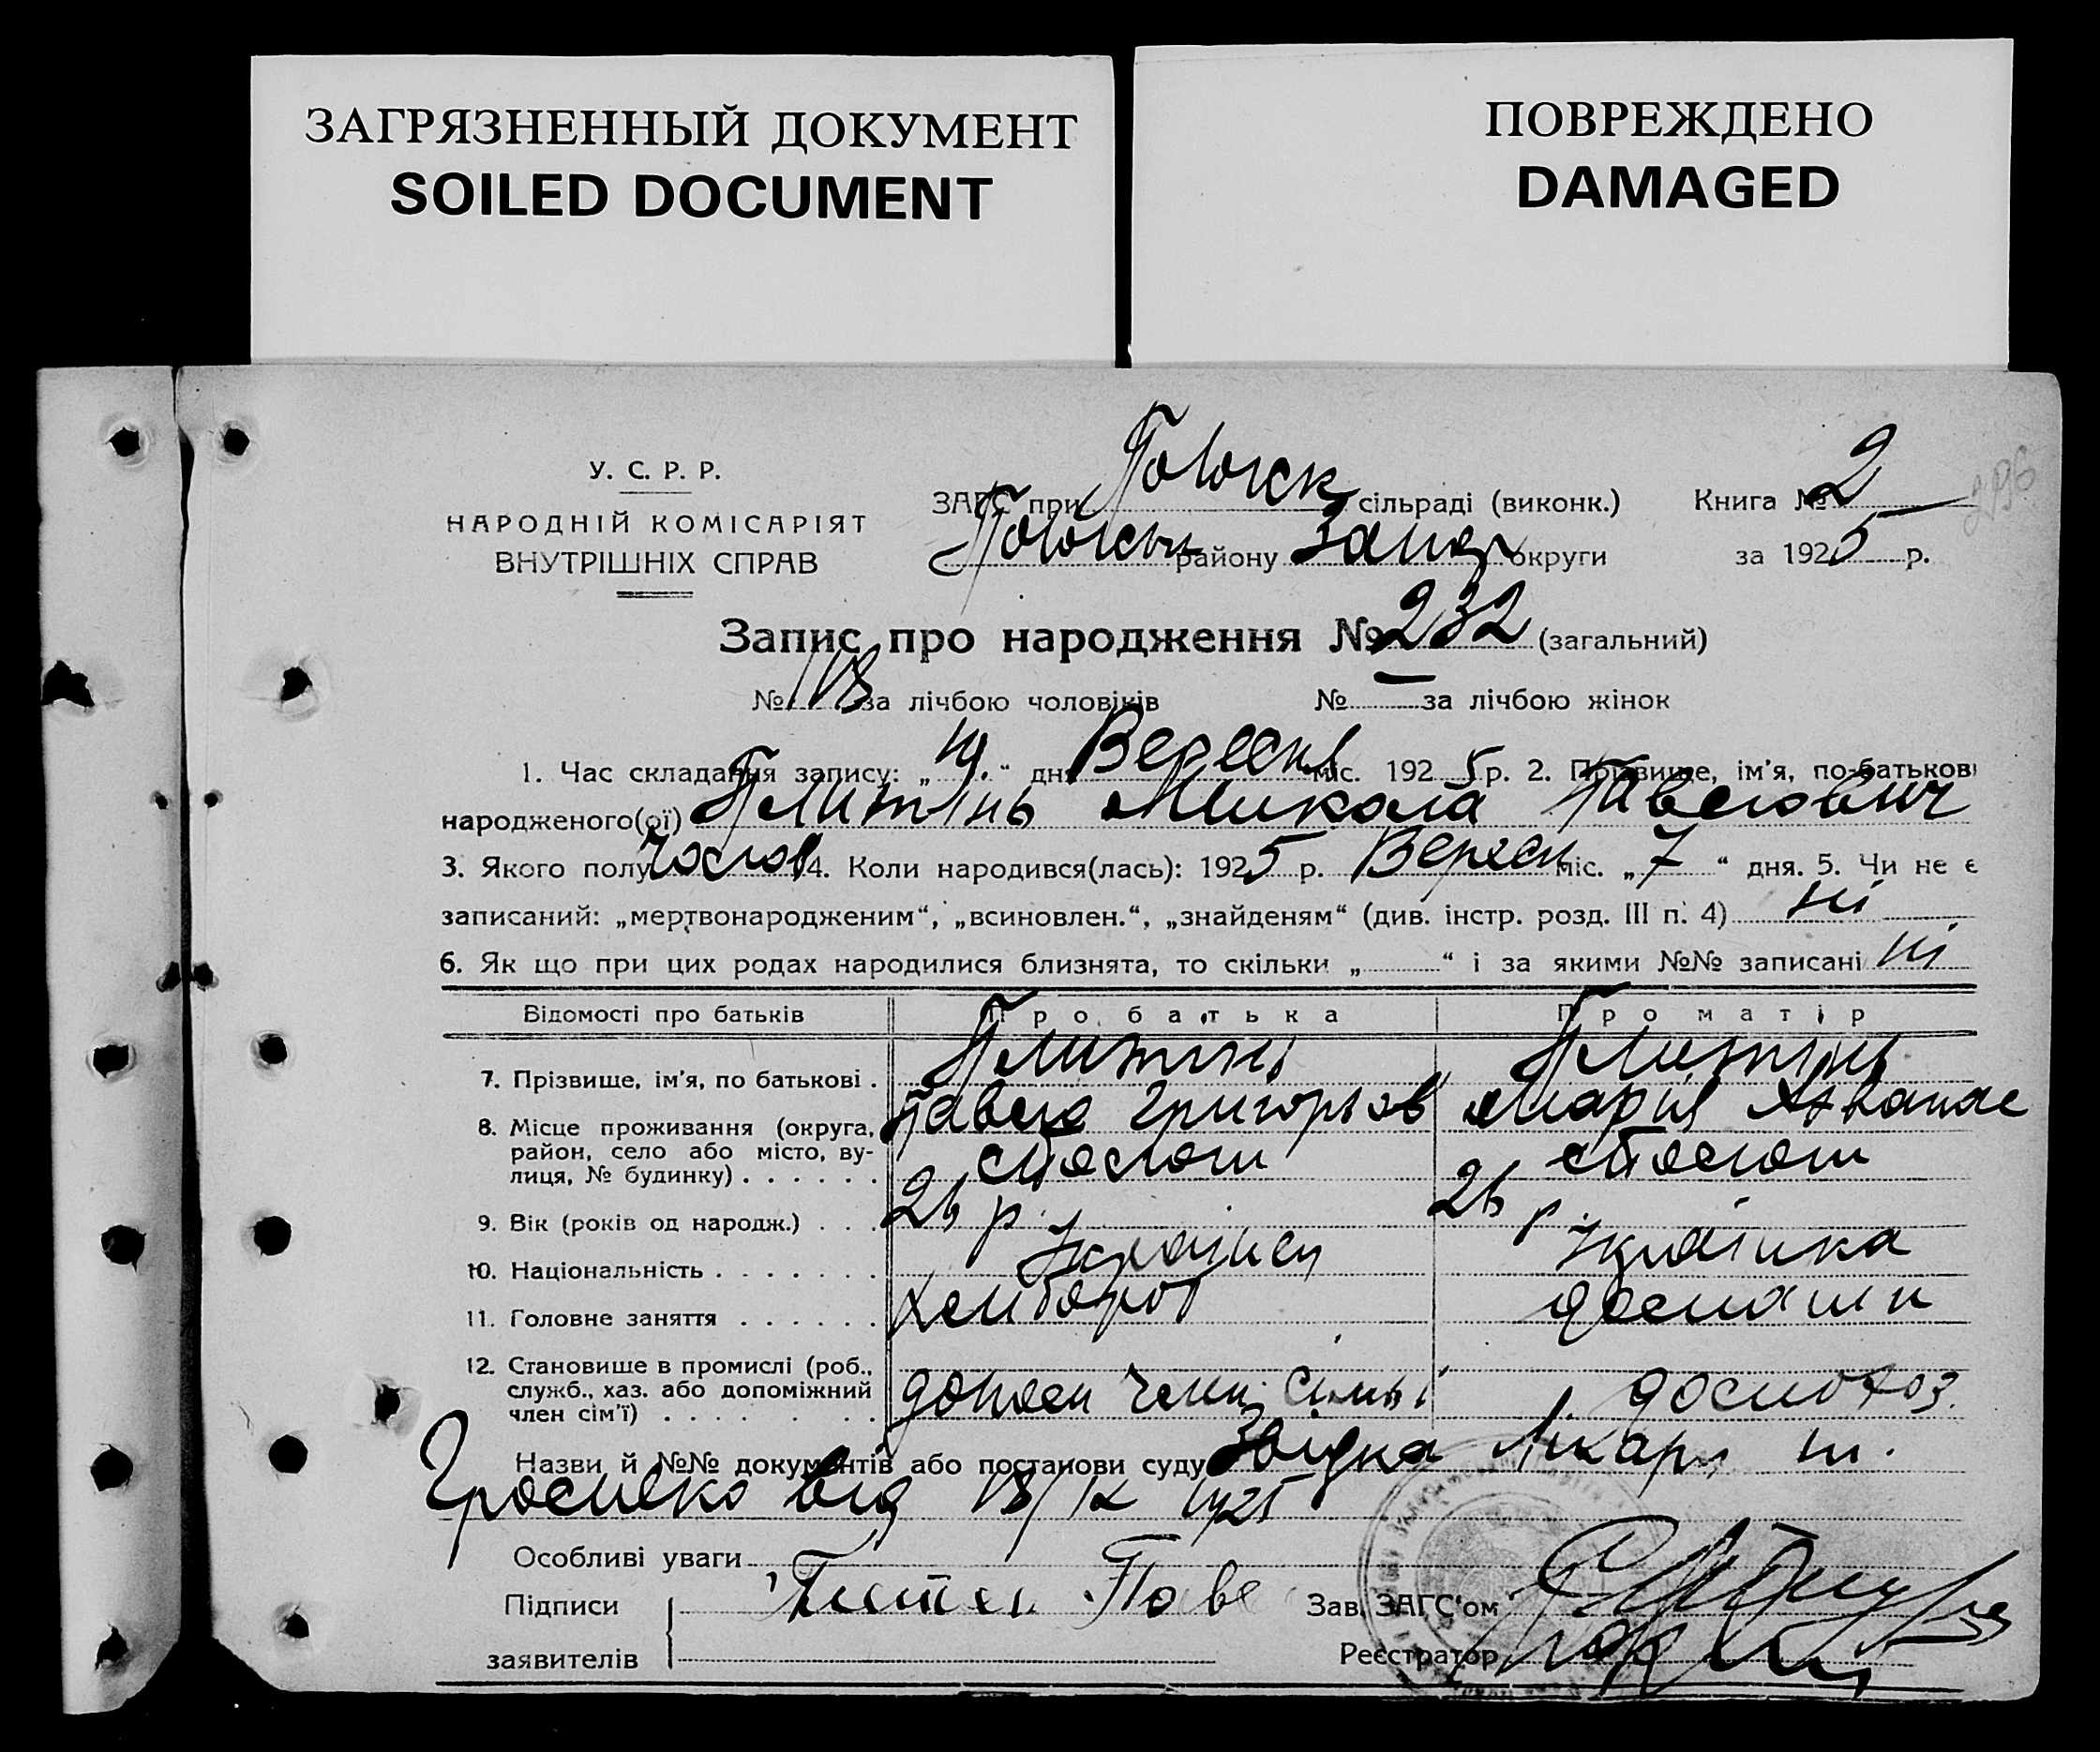 ЗАГРЯЗНЕННЫЙ ДОКУМЕНТ
SOILED DOCUMENT
ПОВРЕЖДЕНО
DAMAGED
У. С. Р. Р.
НАРОДНІЙ КОМІСАРІЯТ
ВНУТРІШНІХ СПРАВ
ЗАГС при сільраді (виконк.) Книга № 2
району Запор округи за 1925 р.
Запис про народження № 232 (загальний)
№ 113 за лічбою чоловіків № — за лічбою жінок
1. Час складання запису: „19.“ дня Вересня міс. 1925 р. 2. Прізвище, ім'я, по-батькові
народженого(ої) Плитінь Микола Павлович
3. Якого полу чолов 4. Коли народився(лась): 1925 р. Вересн міс. „7“ дня. 5. Чи не є
записаний: „мертвонародженим“, „всиновлен.“, „знайденям“ (див. інстр. розд. III п. 4) ні
6. Як що при цих родах народилися близнята, то скільки „ “ і за якими №№ записані ні
Відомості про батьків Про батька Про матір
7. Прізвище, ім'я, по батькові . Плитінь Плитінь
Павло Григорьов Марія Афанас
8. Місце проживання (округа,
район, село або місто, ву-
лиця, № будинку) . . . . . .
9. Вік (років од народж.) . . . 26 р. 26 р.
10. Національність . . . . . . . Українец Українка
11. Головне заняття . . . . . . Хлібороб домашн
12. Становище в промислі (роб.,
служб., хаз. або допоміжний
член сім'ї) . . . . . . . . член сімьі
Назви й №№ документів або постанови суду Звідка Лікаря
від 13/IX 1925
Особливі уваги
Підписи Паве Зав. ЗАГС'ом
заявителів Реєстратор